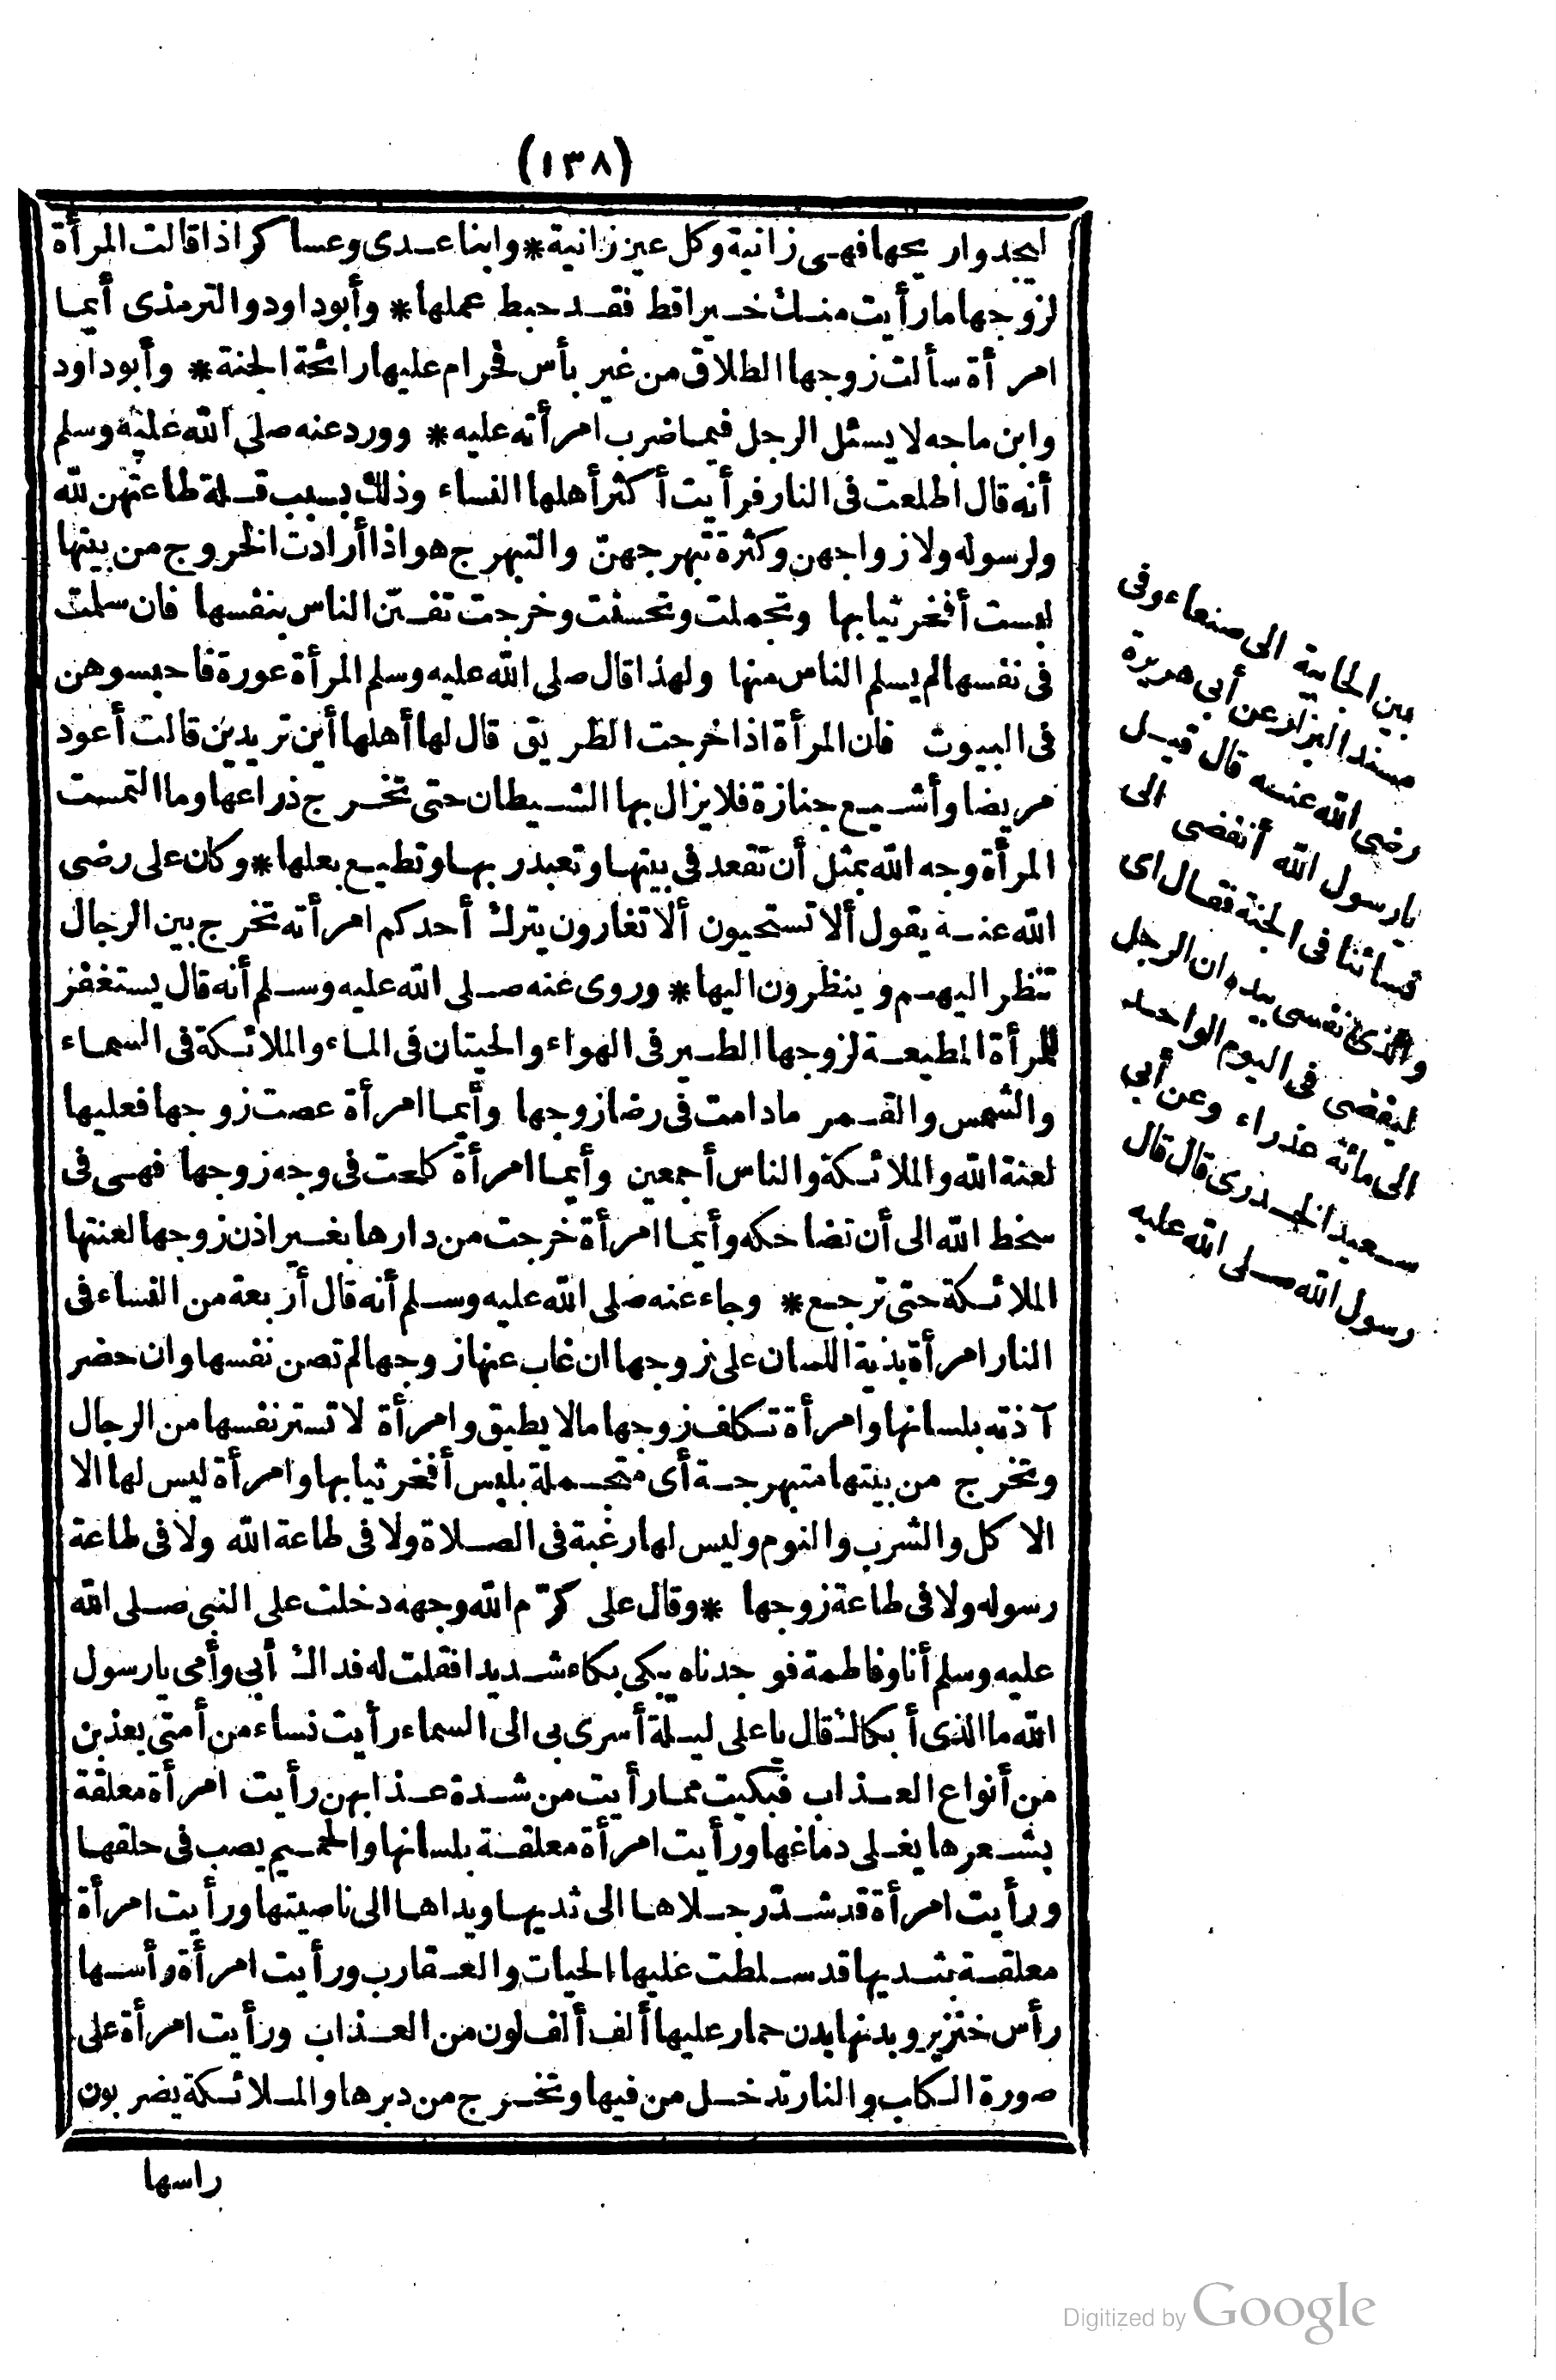 (١٣٨)
ليجدوا ريحها فهي زانية وكل عين زانية * وابنا عدى وعساكر اذا قالت المرأة
لزوجها ما رأيت منك خيرا قط فقد حبط عملها * وأبو داود والترمذى أيما
امرأة سألت زوجها الطلاق من غير بأس فحرام عليها رائحة الجنة * وأبو داود
وابن ماجه لا يسئل الرجل فيما ضرب امرأته عليه * وورد عنه صلى الله عليه وسلم
أنه قال اطلعت فى النار فرأيت أكثر أهلها النساء وذلك بسبب قلة طاعتهن لله
ولرسوله ولازواجهن وكثرة تبهرجهن والتبهرج هو اذا أرادت الخروج من بيتها
لبست أفخر ثيابها وتجملت وتحسنت وخرجت تفتن الناس بنفسها فان سلمت
فى نفسها لم يسلم الناس منها ولهذا قال صلى الله عليه وسلم المرأة عورة فاحبسوهن
فى البيوت فان المرأة اذا خرجت الطريق قال لها أهلها أين تريدين قالت أعود
مريضا وأشيع جنازة فلا يزال بها الشيطان حتى تخرج ذراعها وما التمست
المرأة وجه الله بمثل أن تقعد فى بيتها وتعبد ربها وتطيع بعلها * وكان على رضى
الله عنه يقول ألا تستحيون ألا تغارون يترك أحدكم امرأته تخرج بين الرجال
تنظر اليهم وينظرون اليها * وروى عنه صلى الله عليه وسلم أنه قال يستغفر
للمرأة المطيعة لزوجها الطير فى الهواء والحيتان فى الماء والملائكة فى السماء
والشمس والقمر مادامت فى رضا زوجها وأيما امرأة عصت زوجها فعليها
لعنة الله والملائكة والناس أجمعين وأيما امرأة كلحت فى وجه زوجها فهى فى
سخط الله الى أن تضاحكه وأيما امرأة خرجت من دارها بغير اذن زوجها لعنتها
الملائكة حتى ترجع * وجاء عنه صلى الله عليه وسلم أنه قال أربعة من النساء فى
النار امرأة بذية اللسان على زوجها ان غاب عنها زوجها لم تصن نفسها وان حضر
آذته بلسانها وامرأة تكلف زوجها مالا يطيق وامرأة لا تستر نفسها من الرجال
وتخرج من بيتها متبهرجة أى متجملة بلبس أفخر ثيابها وامرأة ليس لها الا
الاكل والشرب والنوم وليس لها رغبة فى الصلاة ولا فى طاعة الله ولا فى طاعة
رسوله ولا فى طاعة زوجها * وقال على كرّم الله وجهه دخلت على النبى صلى الله
عليه وسلم أنا وفاطمة فوجدناه يبكى بكاء شديدا فقلت له فداك أبى وأمى يا رسول
الله ما الذى أبكاك قال يا على ليلة أسرى بى الى السماء رأيت نساء من أمتى يعذبن
من أنواع العذاب فبكيت مما رأيت من شدة عذابهن رأيت امرأة معلقة
بشعرها يغلى دماغها ورأيت امرأة معلقة بلسانها والحميم يصب فى حلقها
ورأيت امرأة قد شدّ رجلاها الى ثديها ويداها الى ناصيتها ورأيت امرأة
معلقة بثديها قد سلطت عليها الحيات والعقارب ورأيت امرأة رأسها
رأس خنزير وبدنها بدن حمار عليها ألف ألف لون من العذاب ورأيت امرأة على
صورة الكلب والنار تدخل من فيها وتخرج من دبرها والملائكة يضربون
راسها
بين الجابية الى صنعاء وفى
مسند البزار عن أبى هريرة
رضى الله عنه قال قيل
يا رسول الله أنفضى الى
نسائنا فى الجنة فقال اى
والذى نفسى بيده ان الرجل
ليفضى فى اليوم الواحد
الى مائة عذراء وعن أبى
سعيد الخدرى قال قال
رسول الله صلى الله عليه
Digitized by Google